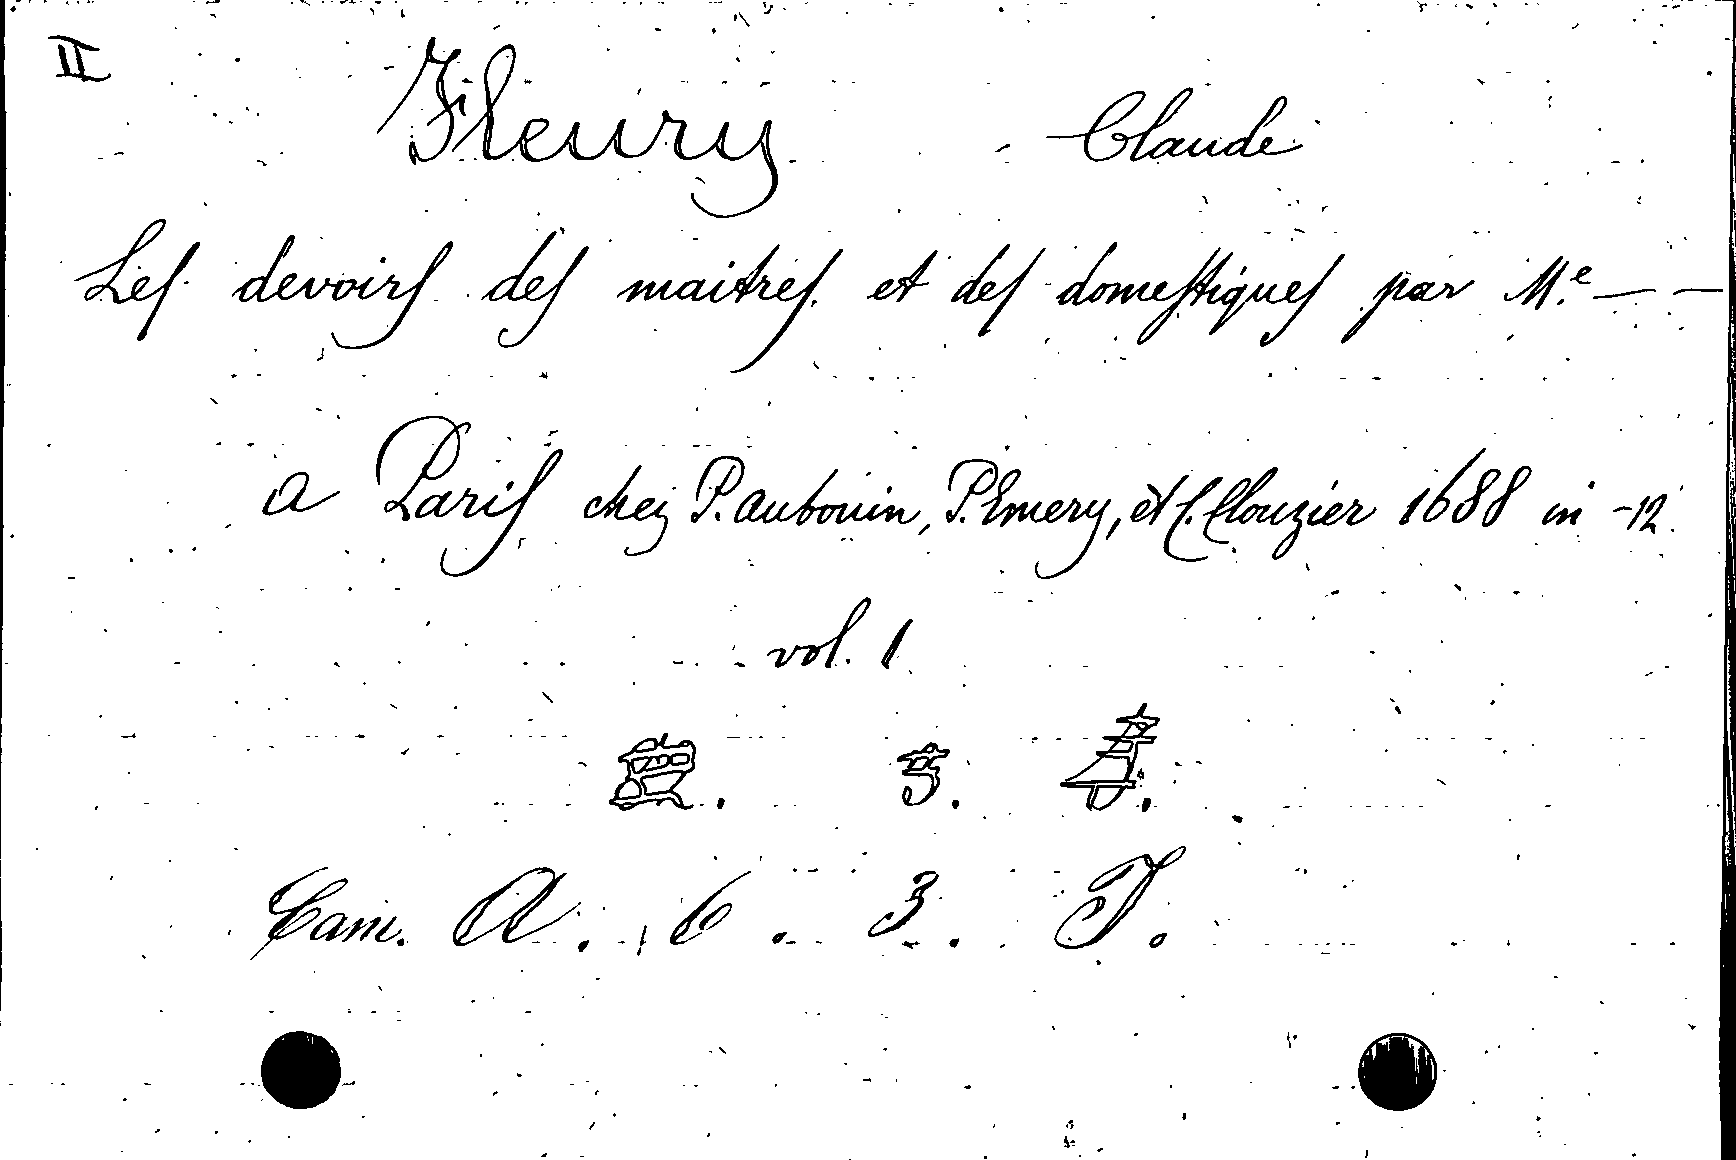 II
Fleury Claude
Les devoirs des maitres et des domestiques par M.e — —
a Paris chez P. Aubouin, P. Emery, et C. Clouzier 1688 in -12.
vol. 1
Cam. A. 6. 3. J.